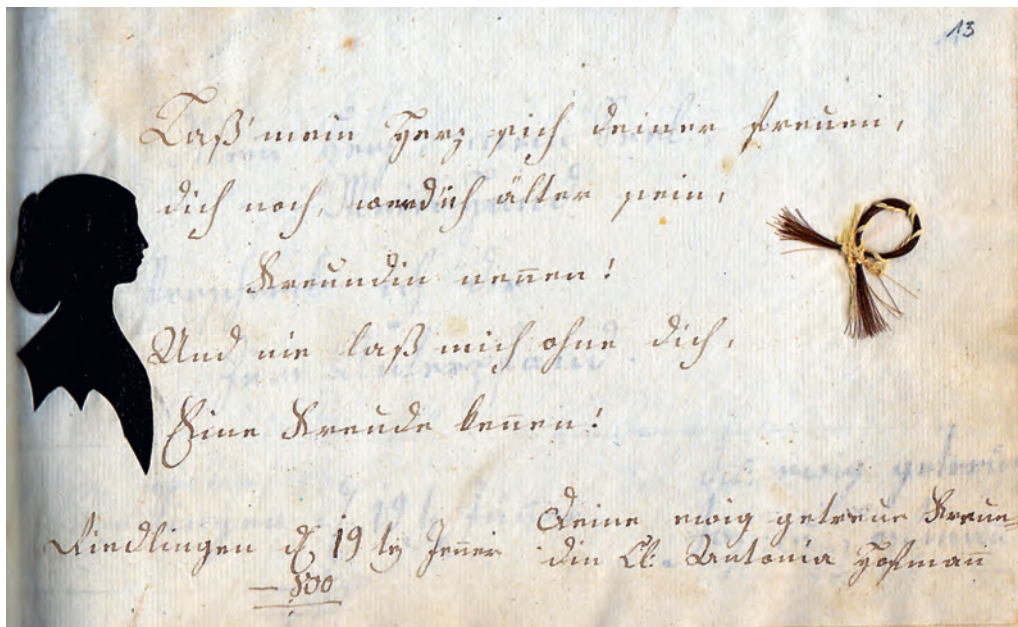 13
Laß' mein Herz sich deiner freuen,
dich noch, werd ich älter sein,
Freundin nennen!
Und nie laß mich ohne dich,
Eine Freude kennen!
Riedlingen d. 19tg Jenner
800
Deine ewig getreue Freun=
din Antonia Hofmann